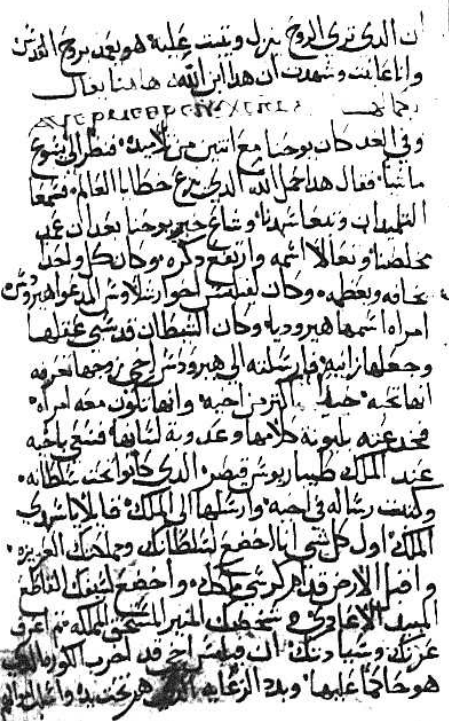 ان الدي تري الروح ينزل ويتبت عليه هو يعمد بروح القدس
وانا عاينت وشهدت ان هدا ابن الله هاهنا يقال
وفي الغد كان يوحنا مع اتنين من تلاميده فنظر الي يسوع
ماشيا فقال هدا حمل الله الدي يرفع خطايا العالم فسمعا
التلميدان وتبعا سيدنا وشاع خبر يوحنا بعد ان عمد
مخلصنا وتعالا اسمه وارتفع دكره وكان كل واحد
يخافه ويعظمه وكان لفيلبس اخو ارشلاوش المدعو هيرودس
امراه اسمها هيروديا وكان الشيطان قد سبي عقلها
وجعلها زانيه فارسلته الي هيرودس اخي زوجها تعرفه
انها تحبه اكتر من اخيه وانها تكون معه امراه
فخدعته بليونة كلامها وعدوبة لسانها فسعي باخيه
عند الملك طيباريوس قيصر الدي كانوا تحت سلطانه
وكتبت رساله في اخيه وارسلها الي الملك قايلا يا سيدي
الملك اول كل شي انا اخضع لسلطانك وحملتك العزيزه
الارض قدام كرسي واخضع لسيفك القاطع
المبيد الاعادي المنير المستحق المملكه تم اعرف
عزتك وسيادتك ان فيلبس اخي قد اخرب الكوره الدي
هو حاكما عليها وبدد الرعايه